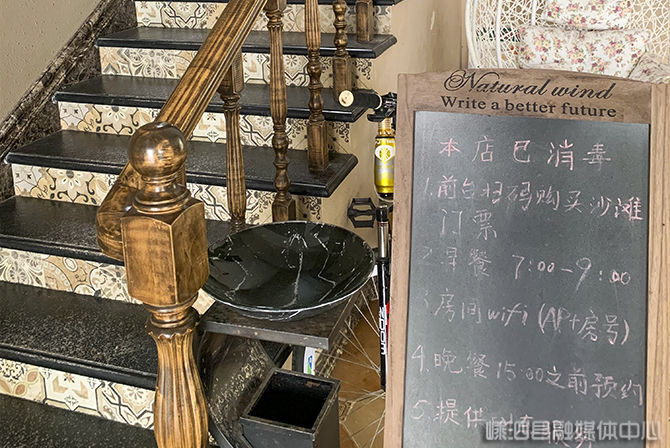 Natural wind
Write a better future
本店已消毒
1.前台扫码购买沙滩
门票
2.早餐 7:00-9:00
3.房间wifi(AP+房号)
4.晚餐15:00之前预约
5.提供
嵊泗县融媒体中心